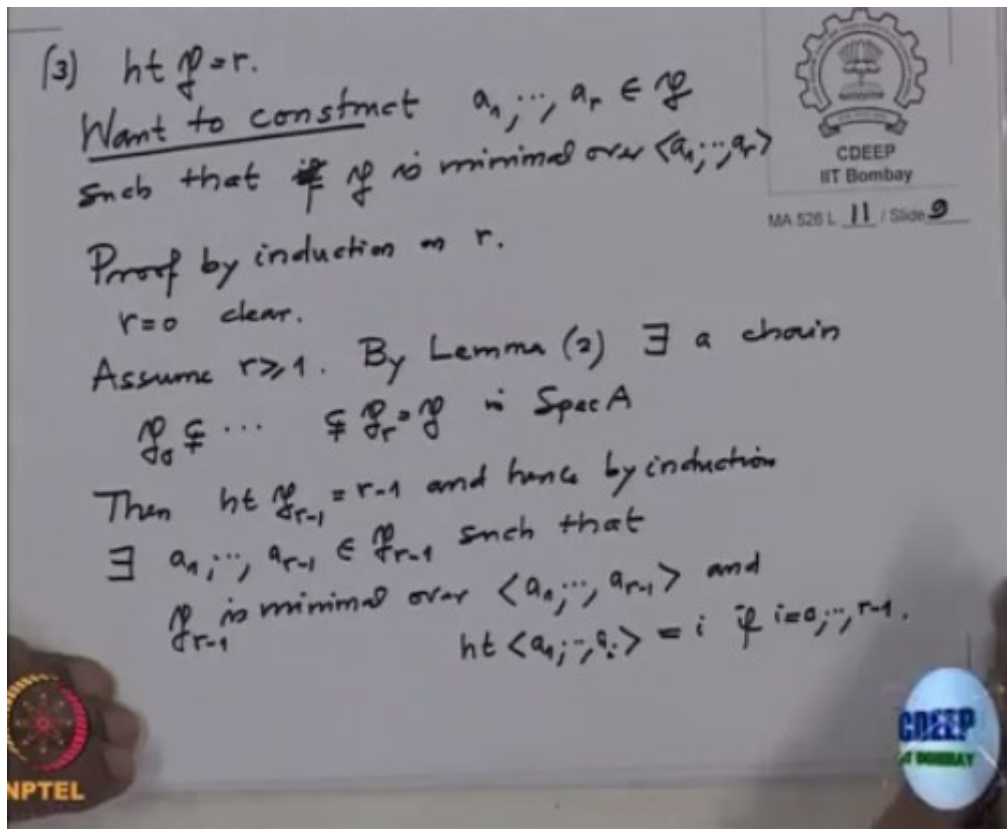 (3) ht 𝔭 = r.
Want to construct a₁, ..., aᵣ ∈ 𝔭
such that if 𝔭 is minimal over <a₁, ..., aᵣ>
CDEEP
IIT Bombay
MA 526 L 11 / Slide 9
Proof by induction on r.
r=0 clear.
Assume r≥1. By Lemma (2) ∃ a chain
𝔭₀ ⊊ ... ⊊ 𝔭ᵣ = 𝔭 in Spec A
Then ht 𝔭ᵣ₋₁ = r-1 and hence by induction
∃ a₁, ..., aᵣ₋₁ ∈ 𝔭ᵣ₋₁ such that
𝔭ᵣ₋₁ is minimal over <a₁, ..., aᵣ₋₁> and
ht <a₁, ..., aᵢ> = i if i=0, ..., r-1.
NPTEL
CDEEP
IIT BOMBAY